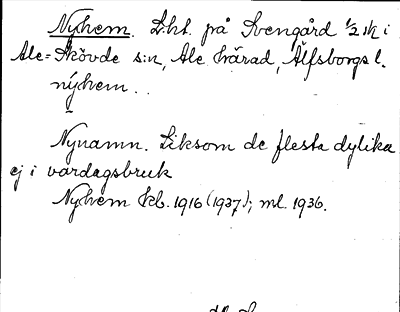 Nyhem. Lht. på Svengård 1/2 1/1 i
Ale-Skövde s:n, Ale härad, Älfsborgs l.
nýhem..
Nynamn. Liksom de flesta dylika
ej i vardagsbruk
Nyhem kb. 1916 (1937); ml. 1936.